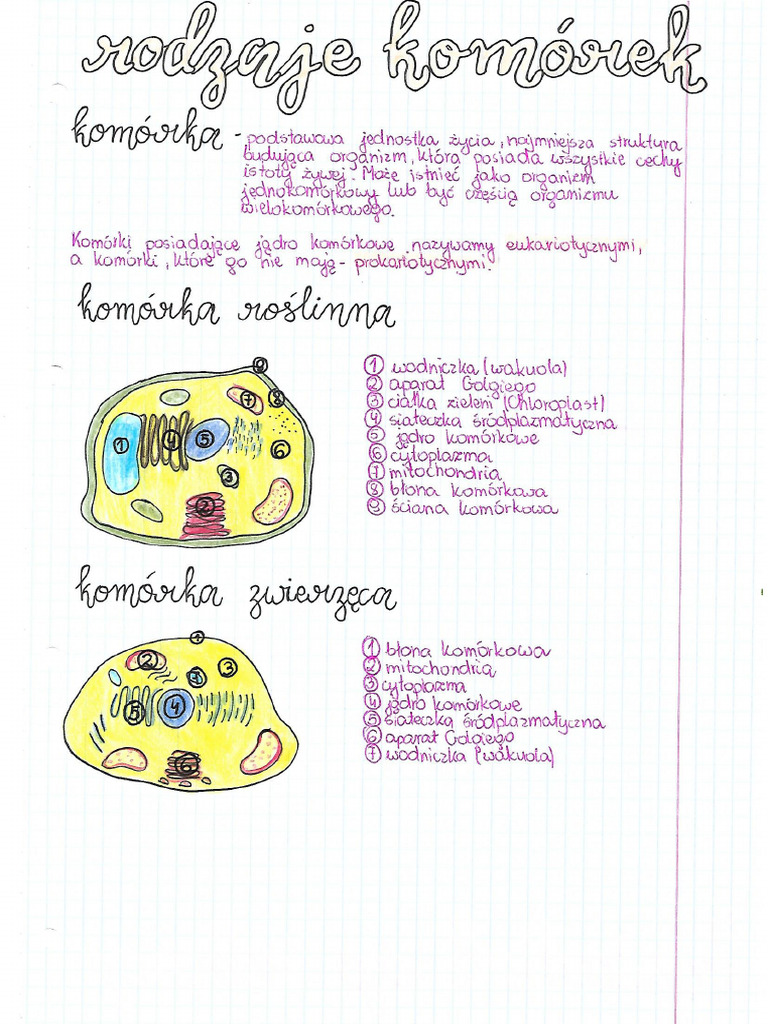 rodzaje komórek
komórka - podstawowa jednostka życia, najmniejsza struktura
budująca organizm, która posiada wszystkie cechy
istoty żywej. Może istnieć jako organizm
jednokomórkowy lub być częścią organizmu
wielokomórkowego.
Komórki posiadające jądro komórkowe nazywamy eukariotycznymi,
a komórki, które go nie mają - prokariotycznymi.
komórka roślinna
9
7 8
1 4 5 6
3
2
1 wodniczka (wakuola)
2 aparat Golgiego
3 ciałka zieleni (Chloroplast)
4 siateczka śródplazmatyczna
5 jądro komórkowe
6 cytoplazma
7 mitochondria
8 błona komórkowa
9 ściana komórkowa
komórka zwierzęca
1
2 7 3
5 4
6
1 błona komórkowa
2 mitochondria
3 cytoplazma
4 jądro komórkowe
5 siateczka śródplazmatyczna
6 aparat Golgiego
7 wodniczka (wakuola)